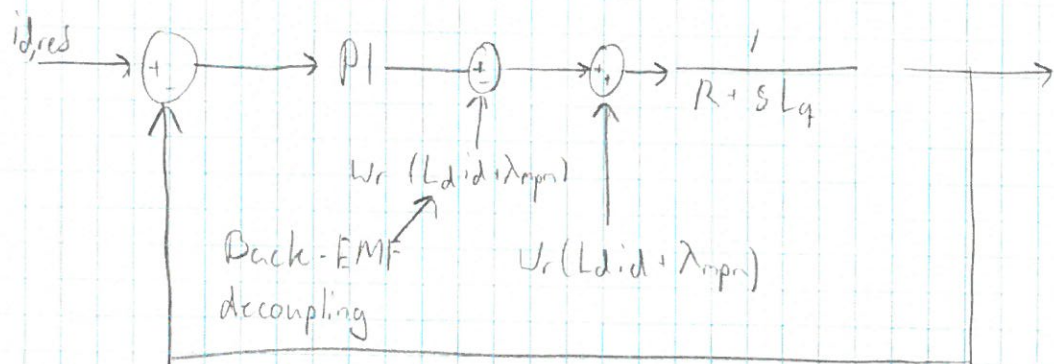 id,res
+
-
PI
+
-
+
+
1
R + SLq
Wr (Ldid+λmpm)
Back-EMF
decoupling
Wr(Ldid+λmpm)